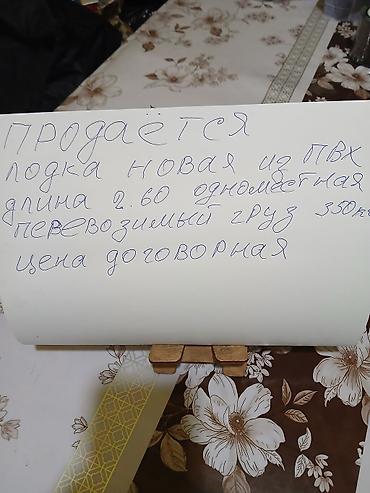 ПРОДАЁТСЯ
лодка новая из ПВХ
длина 2.60 одноместная
перевозимый груз 350кг
цена договорная